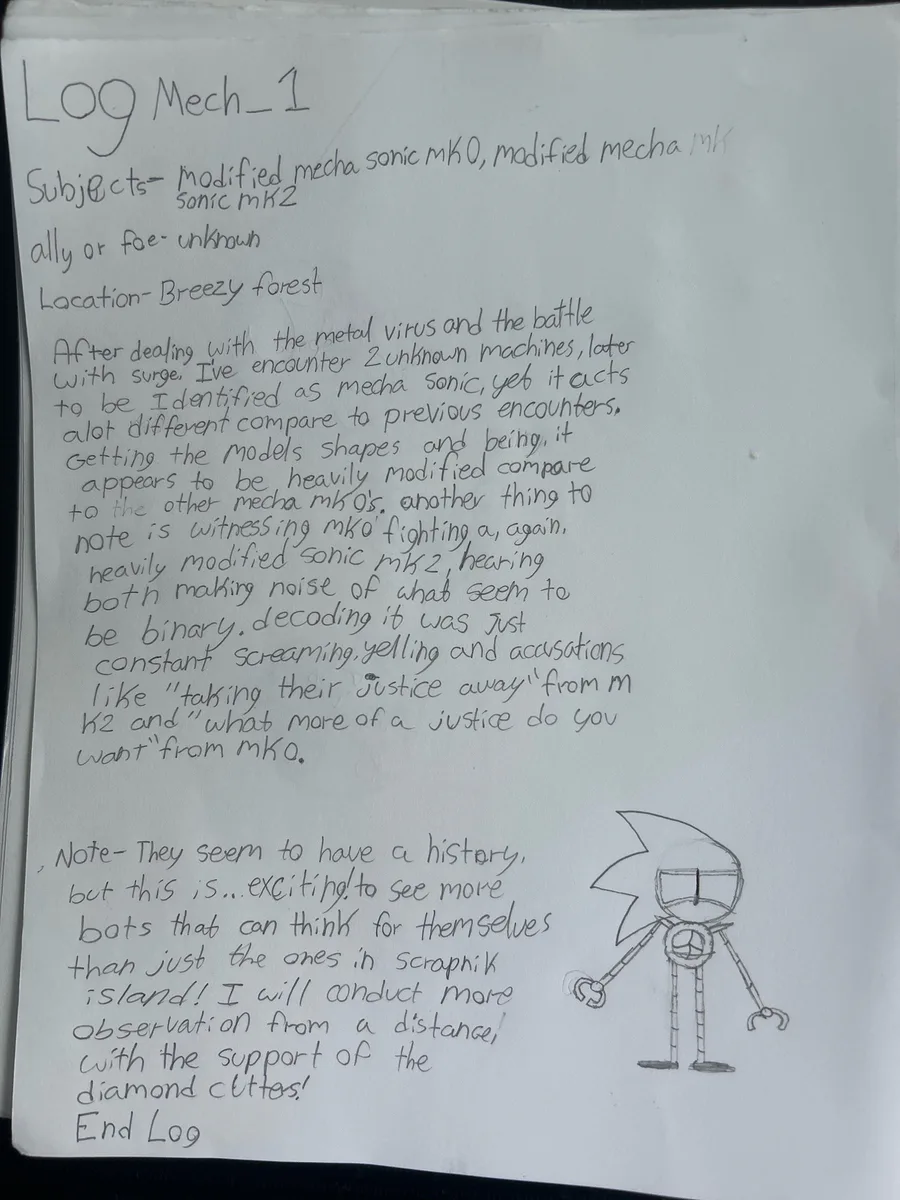 Log Mech_1
Subjects- modified mecha sonic mk0, modified mecha mk
sonic mk2
ally or foe- unknown
Location- Breezy forest
After dealing with the metal virus and the battle
with surge. I've encounter 2 unknown machines, later
to be Identified as mecha sonic, yet it acts
alot different compare to previous encounters.
Getting the models shapes and being, it
appears to be heavily modified compare
to the other mecha mk0's. another thing to
note is witnessing mk0 fighting a, again,
heavily modified sonic mk2, hearing
both making noise of what seem to
be binary. decoding it was just
constant screaming, yelling and accusations
like "taking their justice away" from m
k2 and "what more of a justice do you
want" from mk0.
Note- They seem to have a history,
but this is...exciting! to see more
bots that can think for themselves
than just the ones in scrapnik
island! I will conduct more
observation from a distance,
with the support of the
diamond cuttes!
End Log